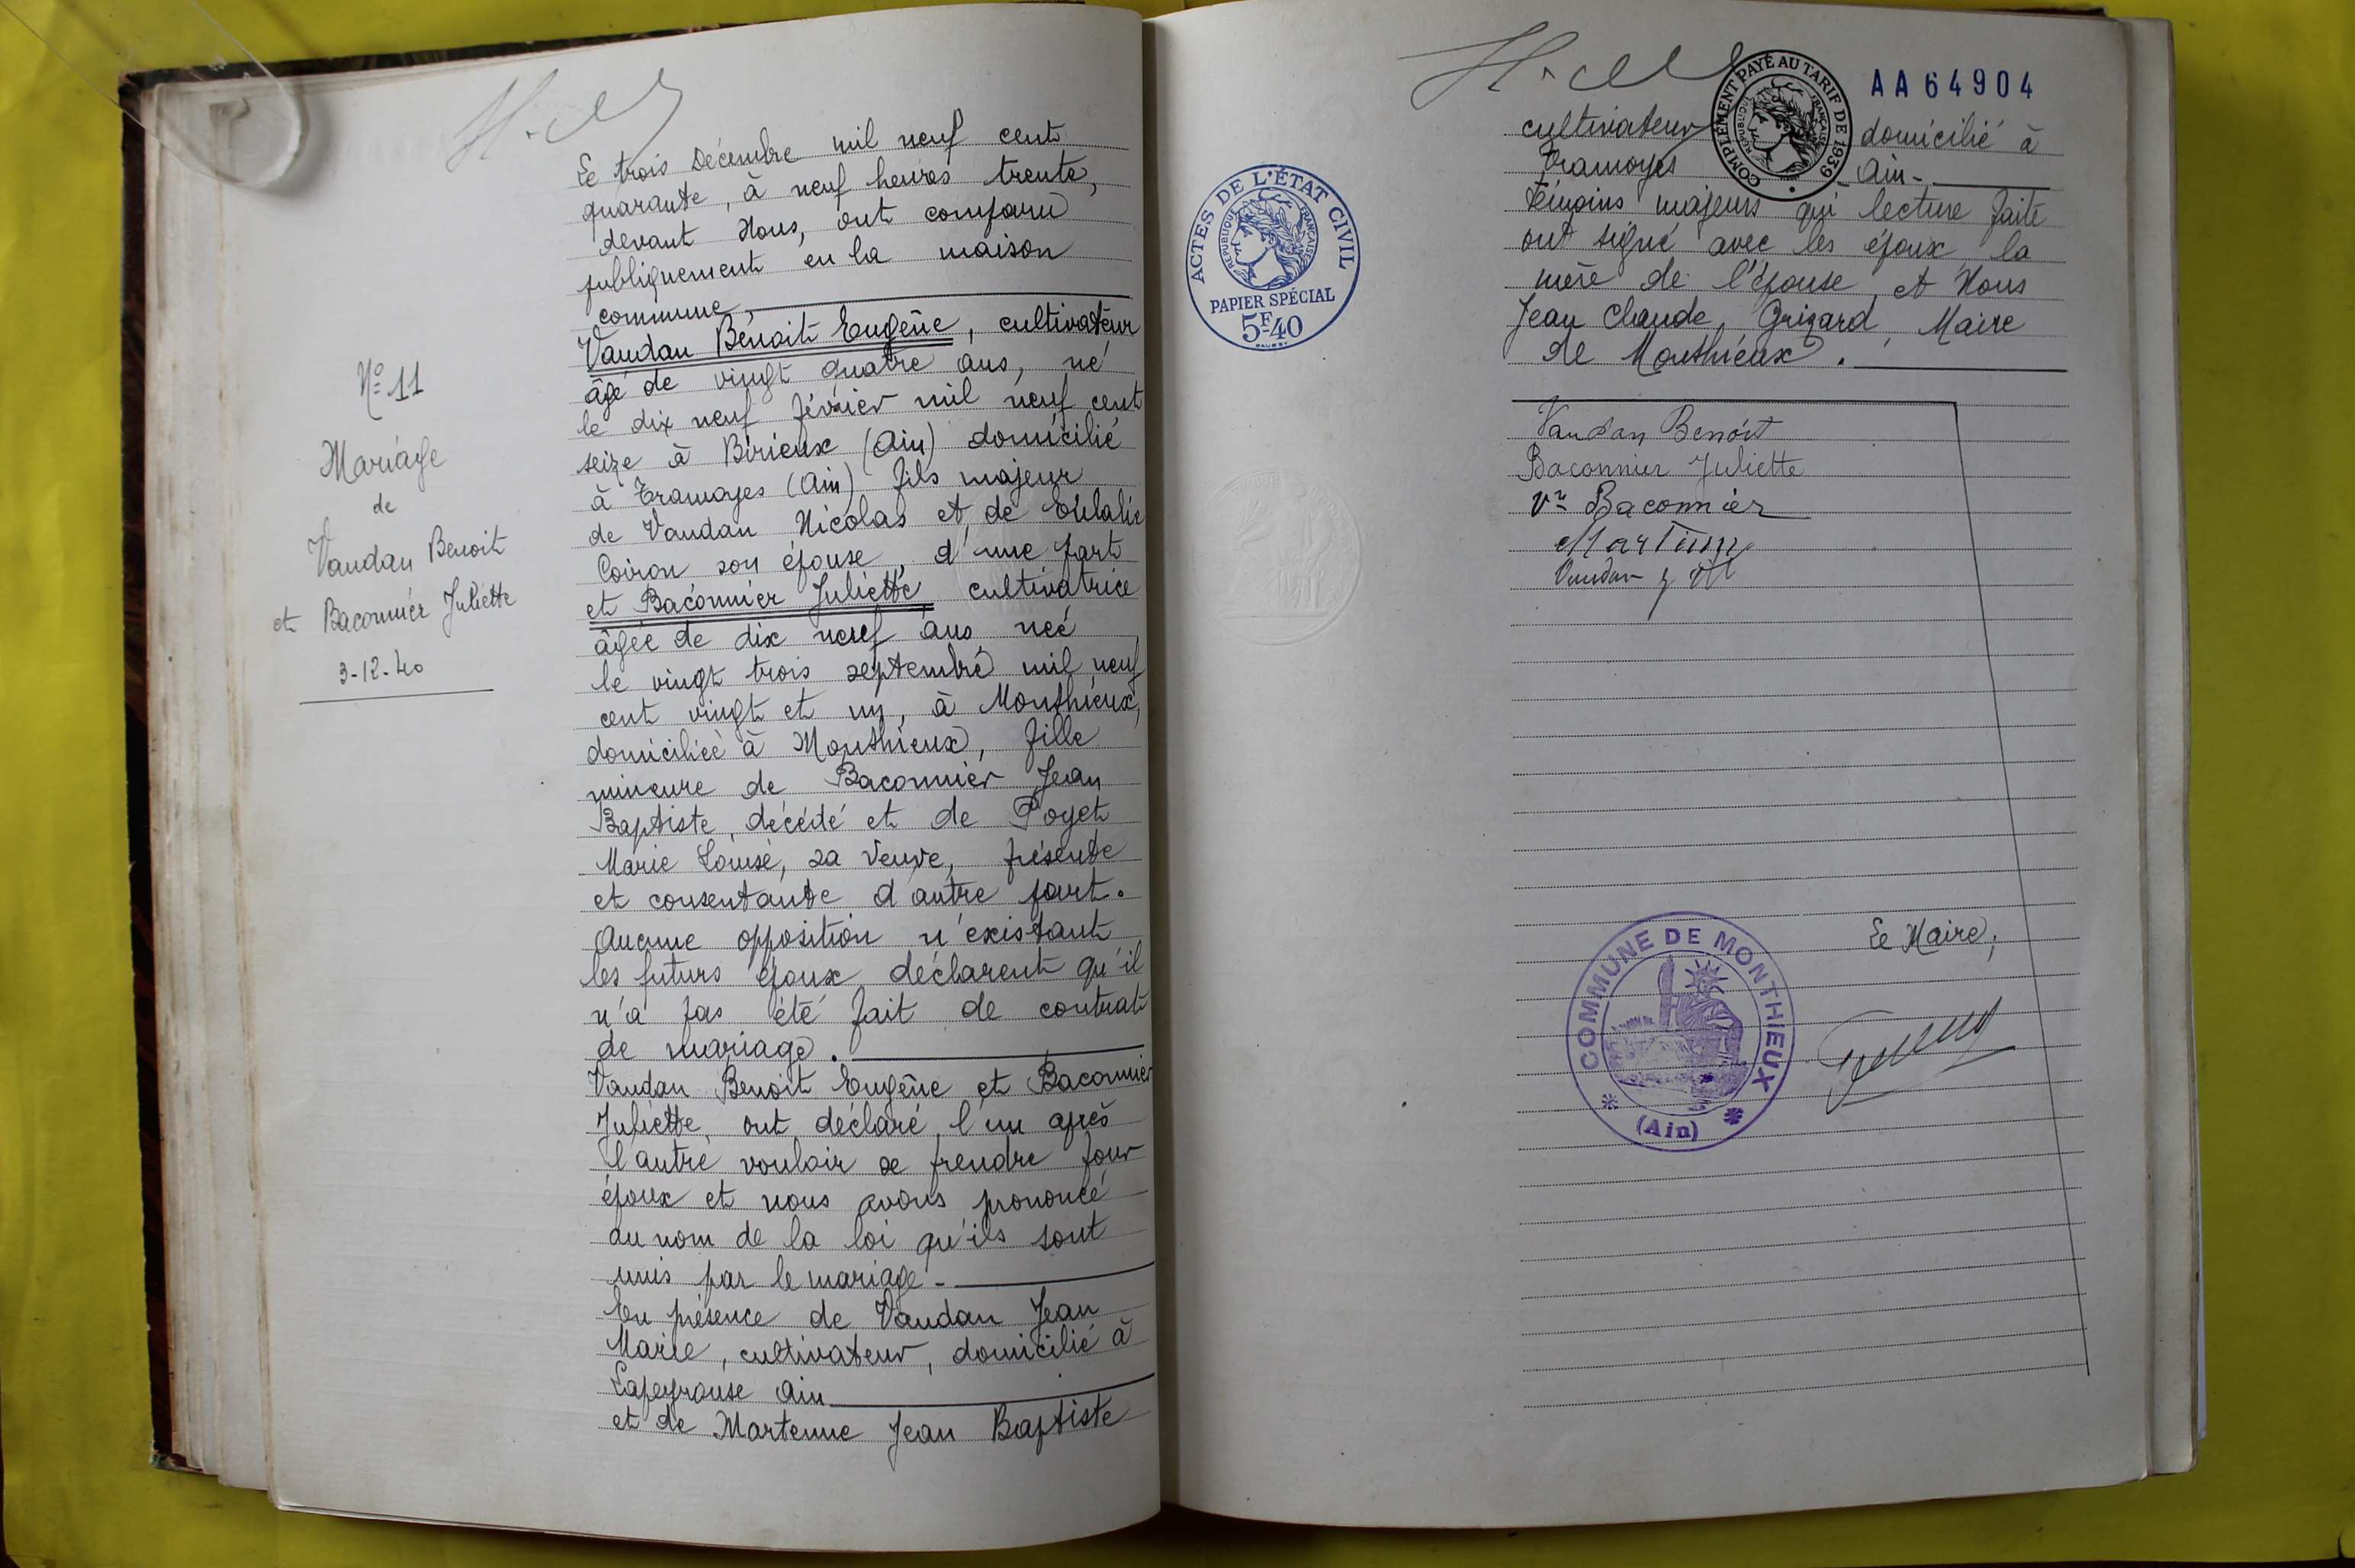 N° 11
Mariage
de
Vaudan Benoit
et Baconnier Juliette
3-12-40
Le trois Décembre mil neuf cent
quarante, à neuf heures trente,
devant Nous, ont comparu
publiquement en la maison
commune,
Vaudan Benoit Eugène, cultivateur
âgé de vingt quatre ans, né
le dix neuf février mil neuf cent
seize à Birieux (Ain) domicilié
à Tramoyes (Ain) fils majeur
de Vaudan Nicolas et de Eulalie
Coiron son épouse, d'une part
et Baconnier Juliette cultivatrice
âgée de dix neuf ans née
le vingt trois septembre mil neuf
cent vingt et un, à Monthieux,
domiciliée à Monthieux, fille
mineure de Baconnier Jean
Baptiste, décédé et de Poyet
Marie Louise, sa veuve, présente
et consentante d'autre part.
Aucune opposition n'existant
les futurs époux déclarent qu'il
n'a pas été fait de contrat
de mariage.
Vaudan Benoit Eugène et Baconnier
Juliette, ont déclaré l'un après
l'autre vouloir se prendre pour
époux et nous avons prononcé
au nom de la loi qu'ils sont
unis par le mariage.
En présence de Vaudan Jean
Marie, cultivateur, domicilié à
Lapeyrouse Ain
et de Martenne Jean Baptiste
ACTES DE L'ÉTAT CIVIL
RÉPUBLIQUE FRANÇAISE
PAPIER SPÉCIAL
5F40
COMPLÉMENT PAYÉ AU TARIF DE 1939
RÉPUBLIQUE FRANÇAISE
AA 64904
cultivateur domicilié à
Tramoyes Ain-
témoins majeurs qui lecture faite
ont signé avec les époux la
mère de l'épouse et Nous
Jean Claude Grizard, Maire
de Monthieux.
Vaudan Benoit
Baconnier Juliette
Vve Baconnier
Vaudan J M
Le Maire,
COMMUNE DE MONTHIEUX
(Ain)